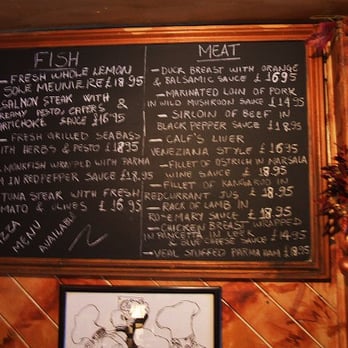 FISH
- FRESH WHOLE LEMON
SOLE MEUNIERE £18.95
SALMON STEAK WITH
CREAMY PESTO, CAPERS &
ARTICHOKE SAUCE £16.95
- FRESH GRILLED SEABASS
WITH HERBS & PESTO £18.95
MONKFISH WRAPPED WITH PARMA
IN REDPEPPER SAUCE £18.95
TUNA STEAK WITH FRESH
TOMATO & OLIVES £16.95
PIZZA
MENU
AVAILABLE
MEAT
- DUCK BREAST WITH ORANGE
& BALSAMIC SAUCE £16.95
- MARINATED LOIN OF PORK
IN WILD MUSHROOM SAUCE £14.95
- SIRLOIN OF BEEF IN
BLACK PEPPER SAUCE £18.95
- CALF'S LIVER
VENEZIANA STYLE £16.95
- FILLET OF OSTRICH IN MARSALA
WINE SAUCE £18.95
- FILLET OF KANGAROO IN
REDCURRANT JUS £18.95
- RACK OF LAMB IN
ROSEMARY SAUCE £18.95
- CHICKEN BREAST WRAPPED
IN PANCETTA IN LEEK
& BLUE CHEESE SAUCE £14.95
- VEAL STUFFED PARMA HAM £18.95